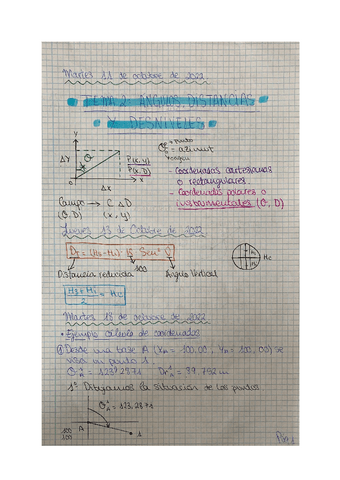 Martes 11 de octubre de 2022
TEMA 2 ANGULOS, DISTANCIAS
Y DESNIVELES
Y
punto
ΔY
θ = azimut
P(x, y)
P(θ, D)
- Coordenadas cartesianas
o rectangulares
- Coordenadas polares o
instrumentales (θ, D)
x
ΔX
Campo → C Δ D
(θ, D) (x, y)
Jueves 13 de Octubre de 2022
Dr = (Hs - Hi) · K · Sen² V
100
Hc
Distancia reducida
Angulo Vertical
Hs + Hi / 2 = Hc
Martes 18 de octubre de 2022
• Ejemplo cálculo de coordenadas
Desde una base A (XA = 100,00, YA = 100,00) se
visa un punto 1.
θ = 123,2871 Dr = 89,792 m
1º Dibujamos la situación de los puntos
θ = 123,2871
A
100
100
1